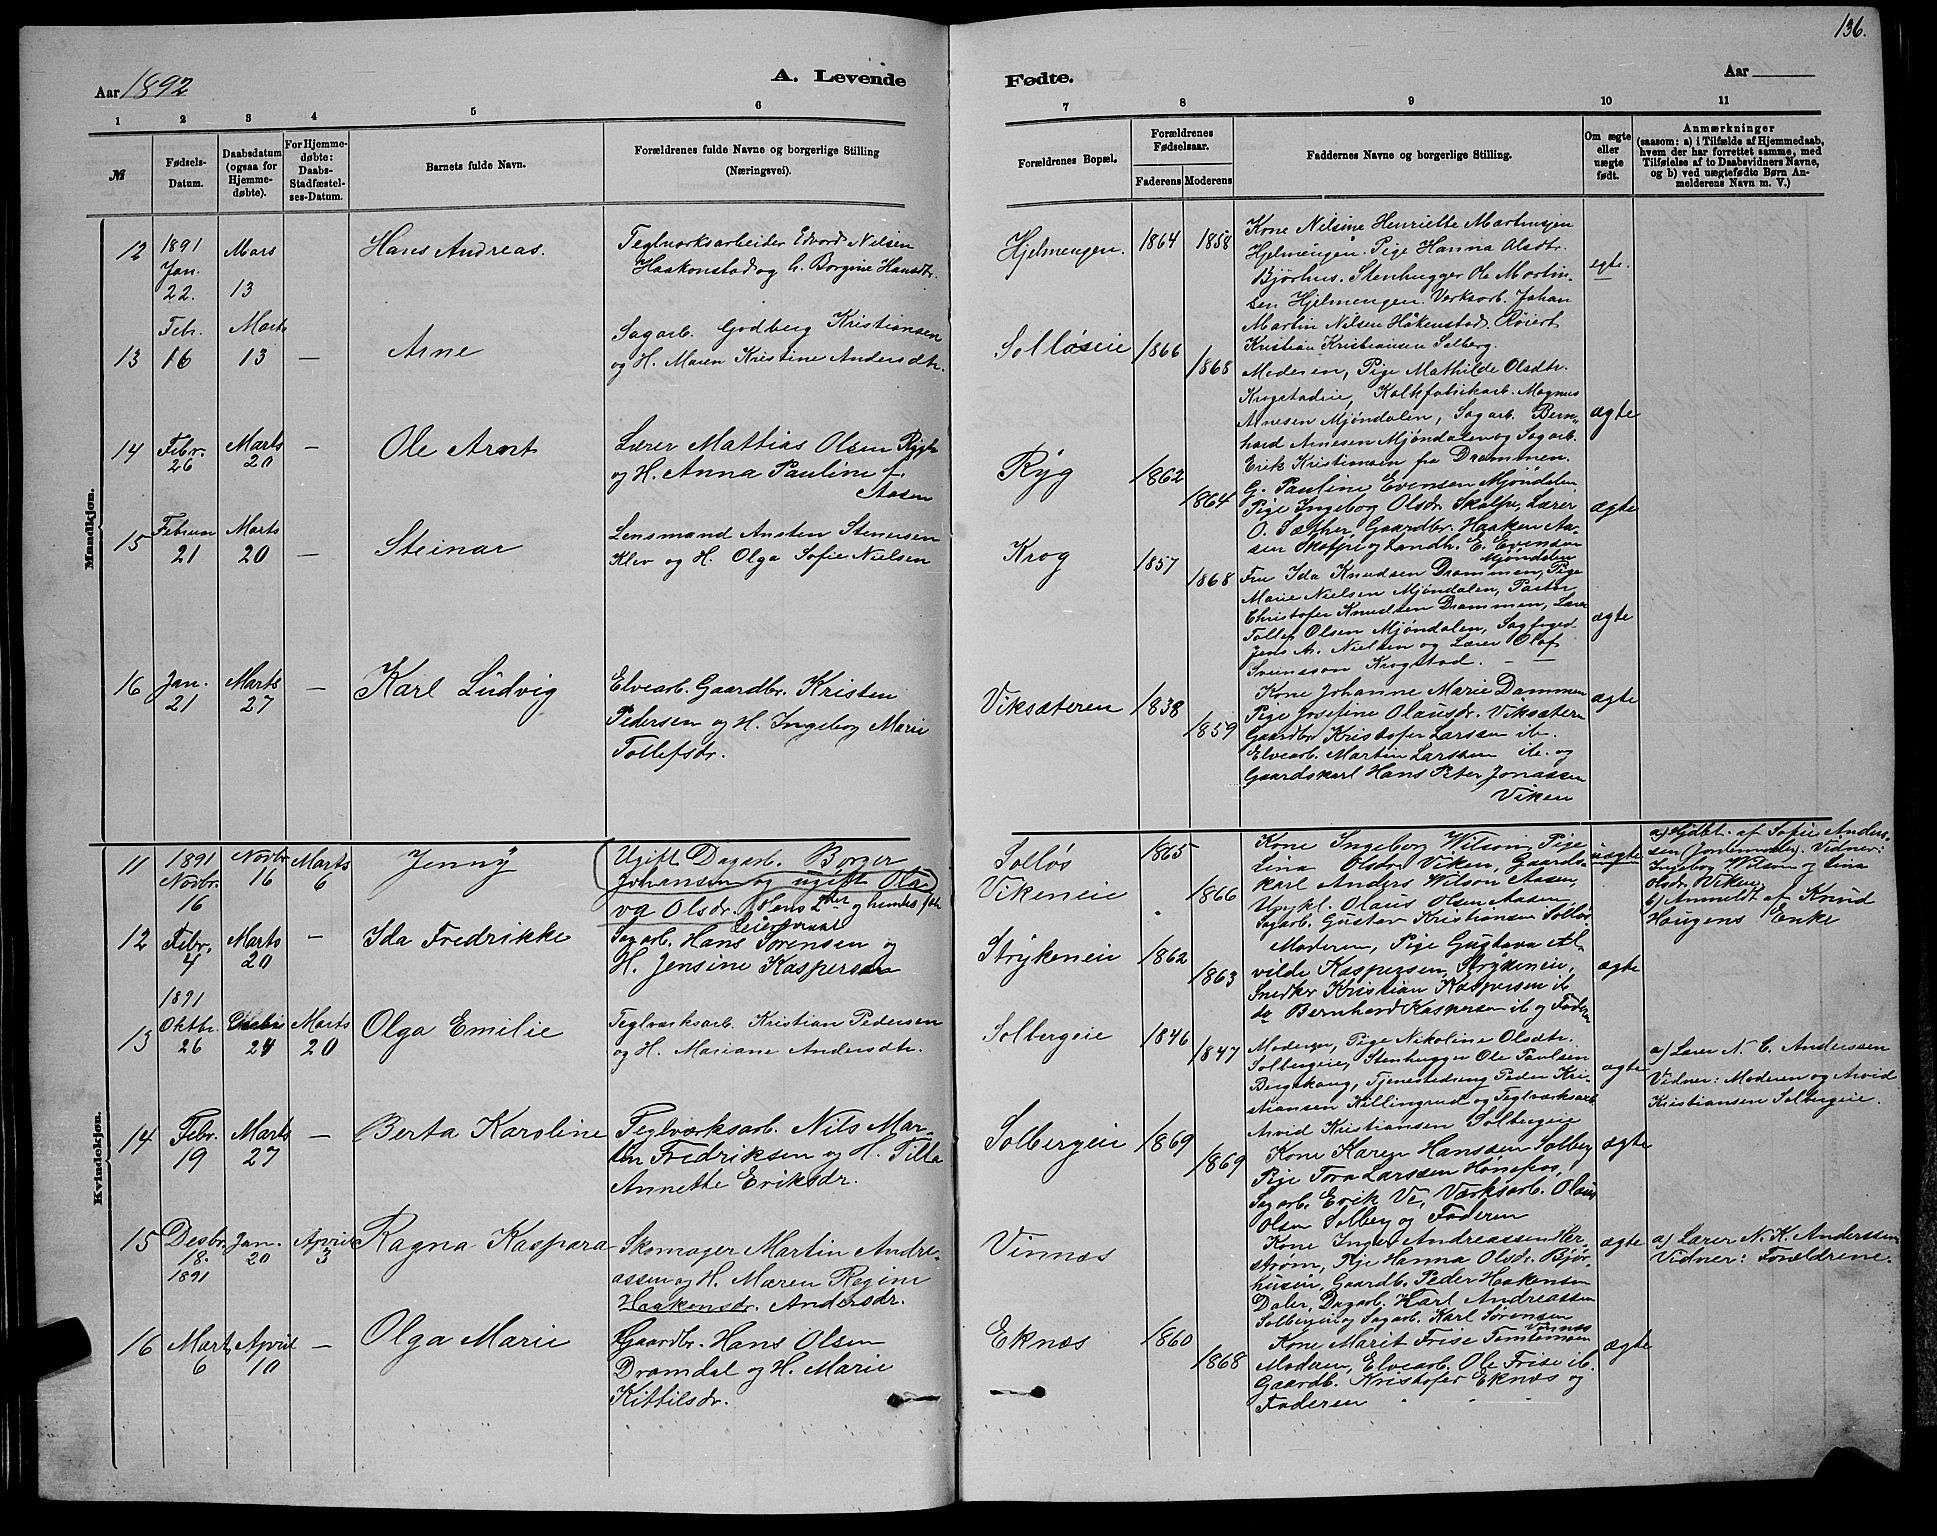 136.
Aar 1892
A. Levende
Fødte.
Aar
1 2 3 4 5 6 7 8 9 10 11
№
Fødsels-
Datum.
Daabsdatum
(ogsaa for
Hjemme-
døbte).
For Hjemme-
døbte:
Daabs-
Stadfæstel-
ses-Datum.
Barnets fulde Navn.
Forældrenes fulde Navne og borgerlige Stilling
(Næringsvei).
Forældrenes Bopæl.
Forældrenes
Fødselsaar.
Faderens Moderens
Faddernes Navne og borgerlige Stilling.
Om ægte
eller
uægte
født.
Anmærkninger
(saasom: a) i Tilfælde af Hjemmedaab,
hvem der har forrettet samme, med
Tilføielse af to Daabsvidners Navne,
og b) ved uægtefødte Børn An-
melderens Navn m. V.)
Mandkjøn.
12
1891
Jan.
22.
Mars
13
Hans Andreas.
Teglværksarbeider Edvard Nilsen
Haakonstad og h. Borgine Hansdtr.
Hjelmengen.
1864
1858
Kone Nilsine Henriette Martinsen
Hjelmengen. Pige Hanna Olsdtr.
Bjørhus. Stenhugger Ole Martin-
sen Hjelmengen. Verksarb. Johan
Martin Nilsen Håkenstad. Røiert
Kristian Kristiansen Solberg.
egte.
13
Febr.
16
Marts
13
—
Arne
Sagarb. Godberg Kristiansen
og H. Maren Kristine Andersdtr.
Solløseie
1866
1868
Moderen, Pige Mathilde Olsdtr.
Krogstadeie, Kalkfabrikarb. Magnus
Arnesen Mjøndalen, Sagarb. Bern-
hard Arnesen Mjøndalen og Sagarb.
Erik Kristiansen fra Drammen.
ægte
14
Febr.
26
Marts
20
—
Ole Arnt
Lærer Mattias Olsen Rygh
og H. Anna Pauline f.
Aasen
Ryg
1862
1864
G. Pauline Evensen Mjøndalen
Pige Ingeborg Olsdr. Skalpe, Lærer
O. Sæther, Gaardbr. Haaken Aa-
sen Skalpe og Landh. E. Evensen
Mjøndalen
ægte
15
Februar
21
Marts
20
—
Steinar
Lensmand Ansten Stenersen
Klev og H. Olga Sofie Nielsen
Krog
1857
1868
Fru Ida Knudsen Drammen, Pige
Marie Nielsen Mjøndalen, Pastor
Christofer Knudsen Drammen, Lærer
Tollef Olsen Mjøndalen, Sagfuged
Jens A. Nielsen og Lærer Olaf
Sveinsson Krogstad. — —
ægte
16
Jan.
21
Marts
27
—
Karl Ludvig
Elvearb. Gaardbr. Kristen
Pedersen og H. Ingeborg Marie
Tollefsdr.
Viksæteren
1838
1859
Kone Johanne Marie Dammen
Pige Josefine Olausdr. Viksætern
Gaardbr Kristofer Larssen ib.
Elvearb. Martin Larssen ib. og
Gaardskarl Hans Peter Jonassen
Viken
ægte
Kvindekjøn.
11
1891
Novbr.
16
Novbr.
16
Marts
6
Jenny
Ugift Dagarb. Børger
Johansen og ugift Ola-
va Olsdr. Hans 2det og hendes 1ste
Leiermaal
Solløs
Vikeneie
1865
1866
Kone Ingeborg Wilson, Pige
Lina Olsdr. Viken, Gaards-
karl Anders Wilson Aasen,
Ungkl. Olaus Olsen Aasen
Sagarb. Gustav Kristiansen Solløs
uægte
a) Hjdbt. af Sofie Ander-
sen (Jordemoder). Vidner:
Ingeborg Wilson og Lina
Olsdr. Viken
b) Anmeldt af Knud
Hougens Enke
12
Febr.
4
Marts
20
—
Ida Fredrikke
Sagarb. Hans Sørensen og
H. Jensine Kaspersen
Strykeneie
1862
1863
Moderen, Pige Gustava Al-
vilde Kaspersen, Strykeneie,
Snedker Kristian Kaspersen ib
do Bernhard Kaspersen ib og Faderen
ægte
13
1891
Oktbr.
26
24
Marts
20
Olga Emilie
Teglværksarb. Kristian Pedersen
og H. Mariane Andersdtr.
Solbergeie
1846
1847
Moderen, Pige Nikoline Olsdtr.
Solbergeie, Stenhugger Ole Paulsen
Bergskaug, Tjenestedreng Peder Kri-
stiansen Killingrud og Teglværksarb.
Arvid Kristiansen Solbergeie
ægte
a) Lærer N. C. Anderssen
Vidner: Moderen og Arvid
Kristiansen Solbergeie.
14
Febr.
19
Marts
27
—
Berta Karoline
Teglværksarb. Nils Mar-
tin Fredriksen og H. Tilla
Annette Eriksdr.
Solbergeie
1869
1869
Kone Karen Hanssen Solberg
Pige Tora Larssen Hønefos,
Sagarb. Erik Ve, Værksarb. Olaus
Olsen Solberg og Faderen
ægte
15
Desbr.
18.
1891
Jan.
20
April
3
Ragna Kaspara
Skomager Martin Andre-
assen og H. Maren Regine
Haakensdr. Andersdr.
Vinnæs
Kone Inga Andreassen Her-
strøm, Pige Hanna Olsdr. Bjør-
husein, Gaardb. Peder Haakensen
Daler, Dagarb. Karl Andreassen
Solbergeie og Sagarb. Karl Sørensen
Vinnæs
ægte
a) Lærer N. K. Anderssen
Vidner: Forældrene.
16
Mart
6
April
10
—
Olga Marie
Gaardbr. Hans Olsen
Dramdal og H. Marie
Kittilsdr.
Eknæs
1860
1868
Kone Marit Frise
Moderen, Elvearb. Ole Frise ib.
Gaardb. Kristofer Eknæs og
Faderen
ægte